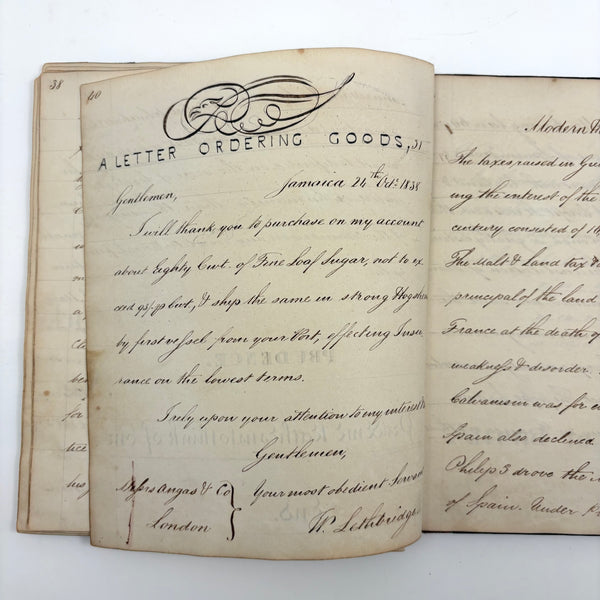 38
40
A LETTER ORDERING GOODS, 31
Jamaica 24th Octr. 1838
Gentlemen,
I will thank you to purchase on my account
about Eighty Cwt. of Fine Loaf Sugar, not to ex
ceed 95/- p Cwt, & ship the same in strong Hogshea
by first vessel from your Port, effecting Insu
rance on the lowest terms.
I rely upon your attention to my interest
Gentlemen,
Messrs Angas & Co
London
Your most obedient Servan
W. Lethbridge
Modern
The taxes raised in Gre
ing the interest of the
century consisted of
The Malt & Land tax
principal of the land
France at the death of
weakness & disorder.
Calvanism was for
Spain also declined
Philip 3 drove the
of Spain. Under